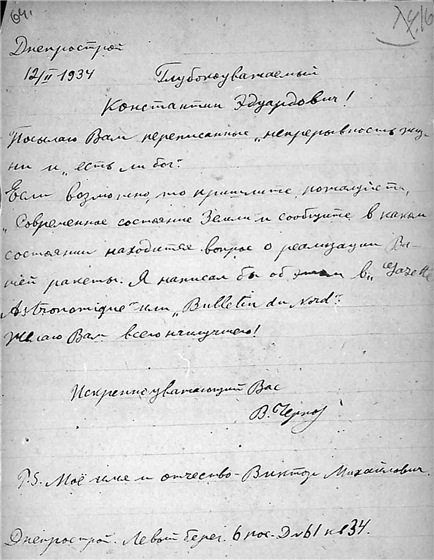 64.
Днепрострой
12/II 1934
Глубокоуважаемый
Константин Эдуардович!
Посылаю Вам переписанные „непрерывность жиз-
ни" и „есть ли бог".
Если возможно, то пришлите, пожалуйста,
„Современное состояние Земли и сообщите в каком
состоянии находится вопрос о реализации Ва-
шей ракеты. Я написал бы об этом в „Gazette
Astronomique" или „Bulletin du Nord".
Желаю Вам всего наилучшего!
Искренно уважающий Вас
В. Чернов
P.S. Моё имя и отчество - Виктор Михайлович.
Днепрострой. Левый берег. 6 пос. Д. № 61 к. 34.